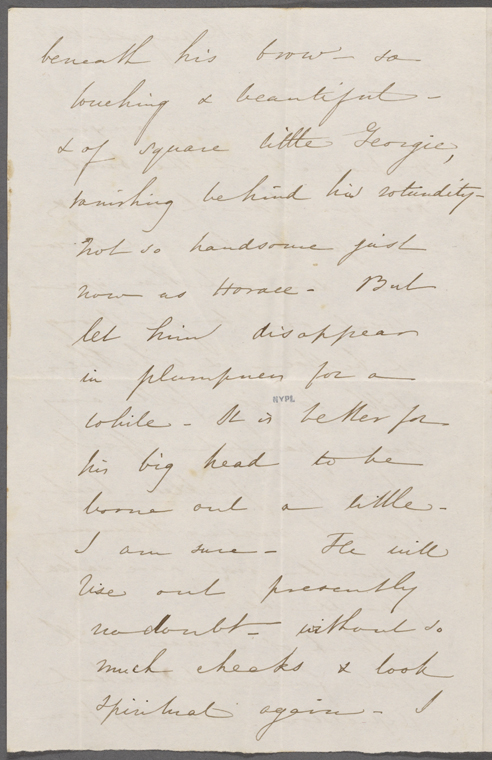 beneath his brow - so
touching & beautiful -
& of square little Georgie,
vanishing behind his rotundity -
Not so handsome just
now as Horace - But
let him disappear
in plumpness for a
while - It is better for
NYPL
his big head to be
borne out a little -
I am sure - He will
rise out presently
no doubt - without so
much cheeks & look
spiritual again - I